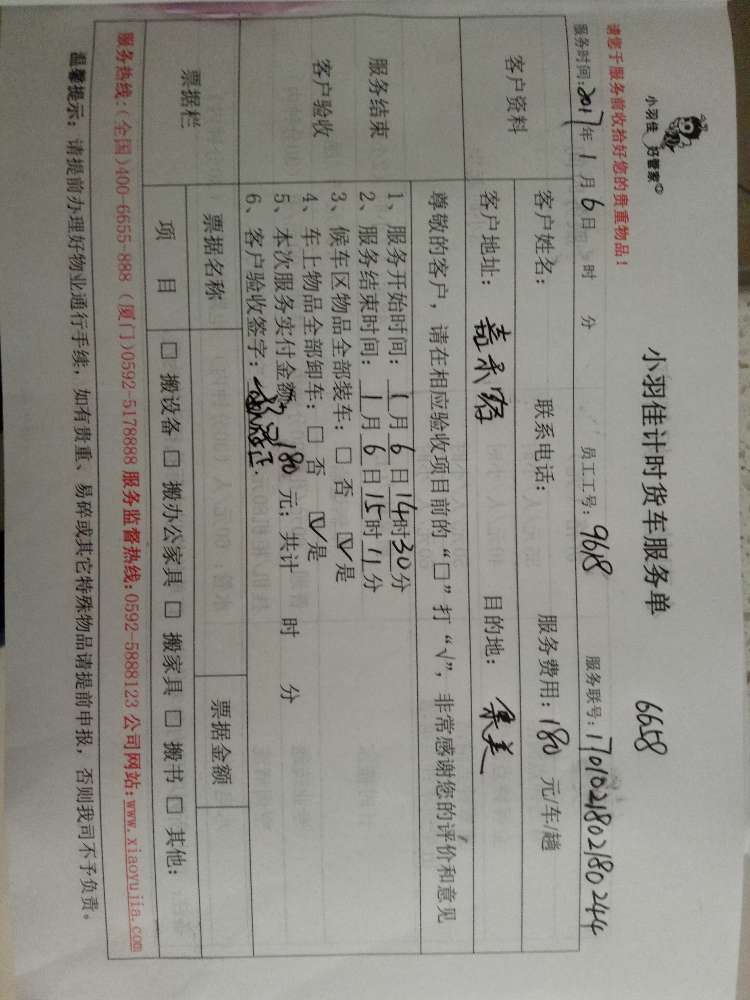 小羽佳 好管家
小羽佳计时货车服务单
6658
请您于服务前收拾好您的贵重物品！
服务时间：2017年1月6日 时 分 员工工号：9618 服务联号：1701021802180244
客户资料
客户姓名： 联系电话： 服务费用：180 元/车/趟
客户地址： 目的地：集美
尊敬的客户，请在相应验收项目前的“□”打“√”，非常感谢您的评价和意见
服务结束
客户验收
1、服务开始时间：1月6日14时30分
2、服务结束时间：1月6日15时11分
3、候车区物品全部装车：□ 否 ☑ 是
4、车上物品全部卸车：□ 否 ☑ 是
5、本次服务实付金额：180 元；共计 时 分
6、客户验收签字：
票据栏
票据名称 票据金额
项 目 □ 搬设备 □ 搬办公家具 □ 搬家具 □ 搬书 □ 其他：
服务热线：(全国)400-6655-888 (厦门)0592-5178888 服务监督热线：0592-5888123 公司网站：www.xiaoyujia.com
温馨提示：请提前办理好物业通行手续，如有贵重、易碎或其它特殊物品请提前申报，否则我司不予负责。